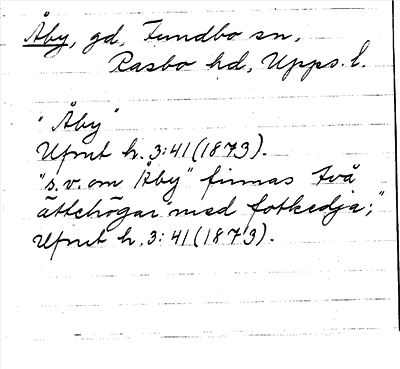 Åby, gd, Funbo sn,
Rasbo hd, Upps. l.
"Åby"
Ufmt h. 3:41 (1873).
"s. v. om Åby" finnas två
ättehögar "med fotkedja;"
Ufmt h. 3:41 (1873).